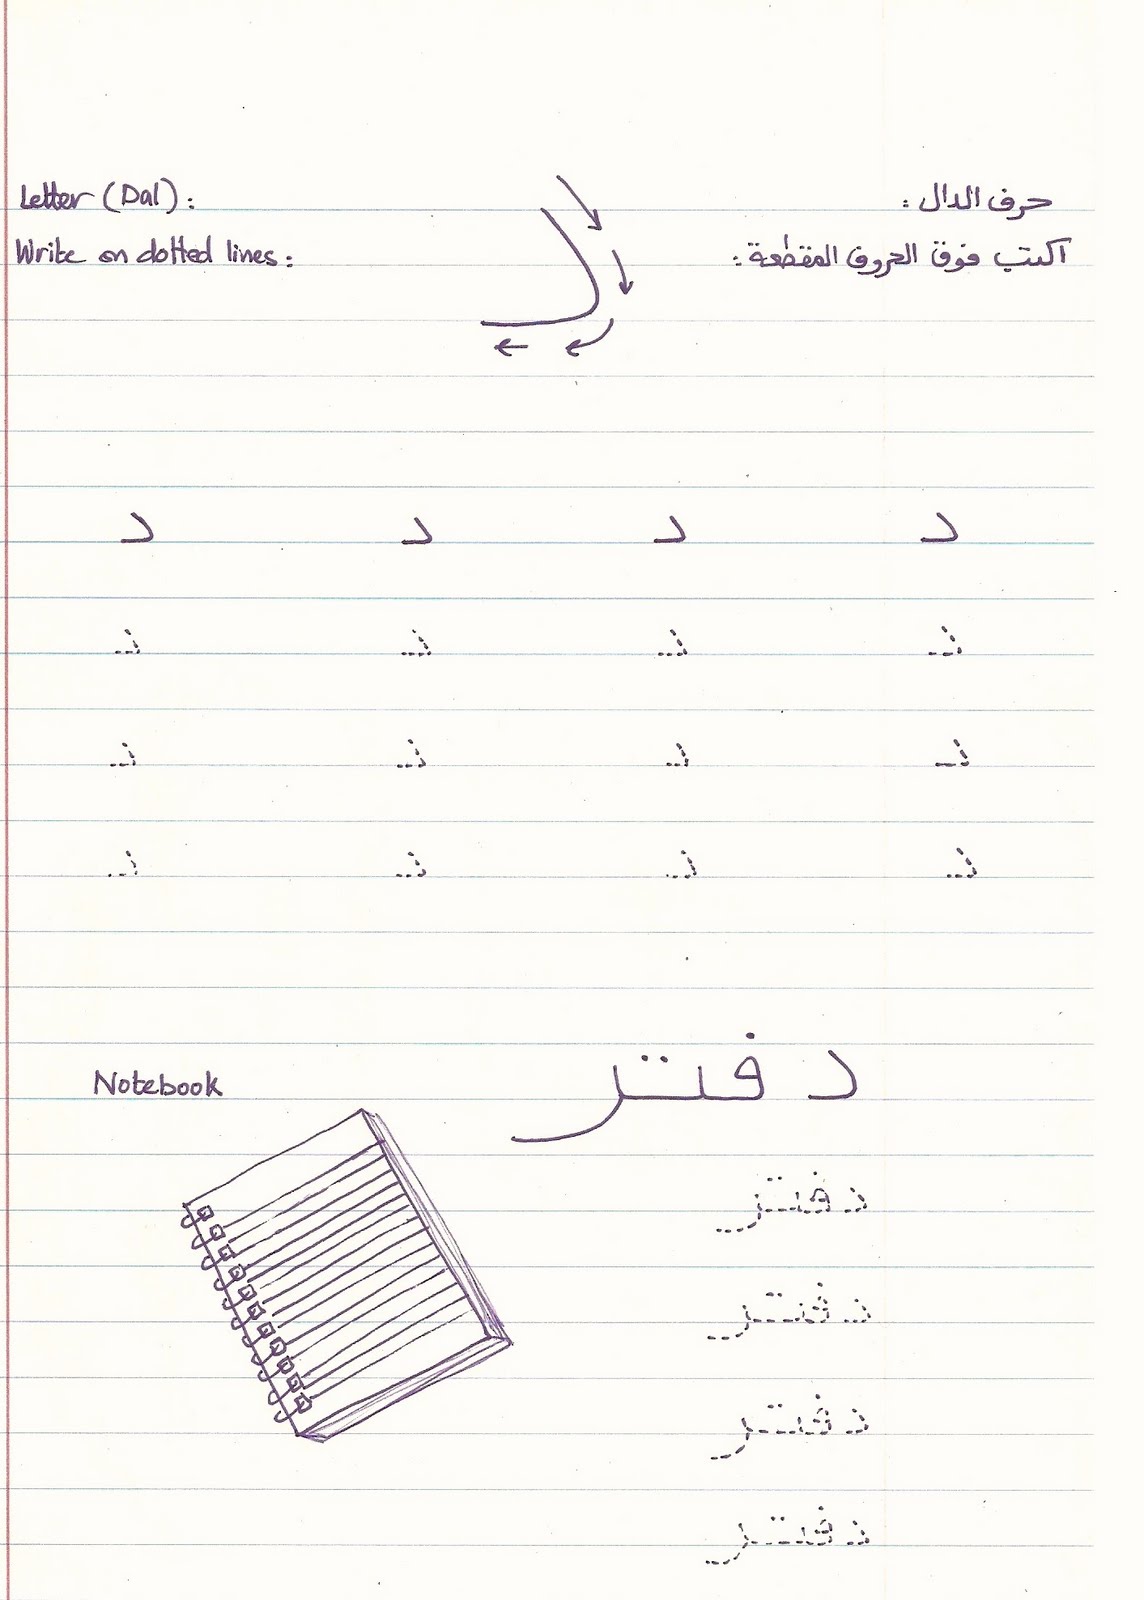 Letter (Dal) : حرف الدال :
Write on dotted lines : اكتب فوق الحروف المقطعة :
د
د د د د
د د د د
د د د د
د د د د
Notebook دفتر
دفتر
دفتر
دفتر
دفتر